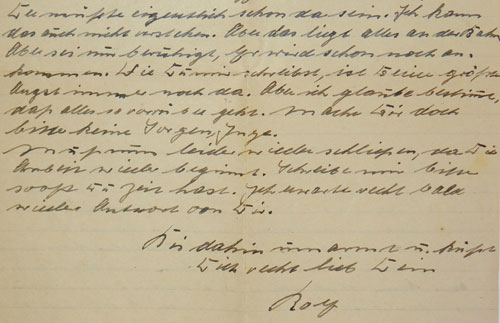 Er müßte eigentlich schon da sein. Ich kann
das auch nicht verstehen. Aber das liegt alles an der Bahn
Aber sei nur beruhigt, Er wird schon noch an.
kommen. Wie Du mir schreibst, ist Deine größte
Angst immer noch da. Aber ich glaube bestimmt,
daß alles so vorüber geht. Mache Dir doch
bitte keine Sorgen, Inge.
Muß nun leider wieder schließen, da die
Arbeit wieder beginnt. Schreibe mir bitte
sooft Du Zeit hast. Ich erwarte recht bald
wieder Antwort von Dir.
Bis dahin umarmt u. küßt
Dich recht lieb Dein
Rolf